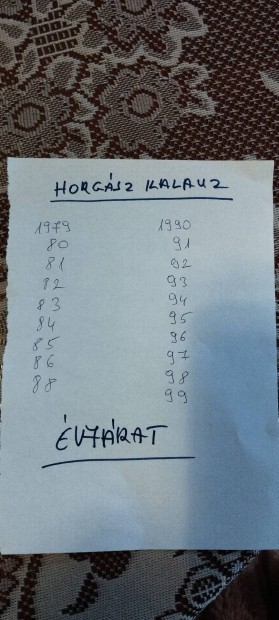 HORGÁSZ KALAUZ
1979 1990
80 91
81 92
82 93
83 94
84 95
85 96
86 97
88 98
99
ÉVJÁRAT